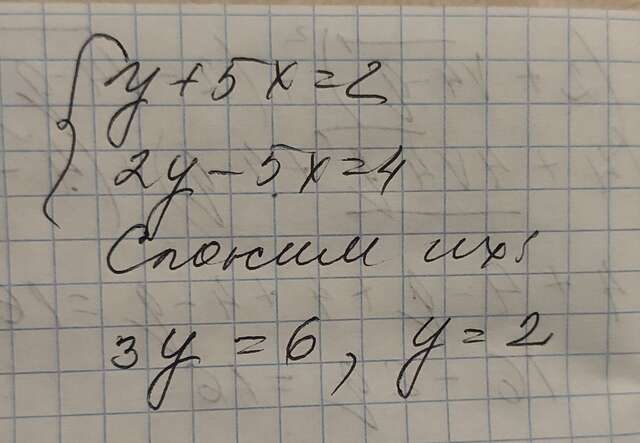 { y + 5x = 2
2y - 5x = 4
Сложим их:
3y = 6, y = 2